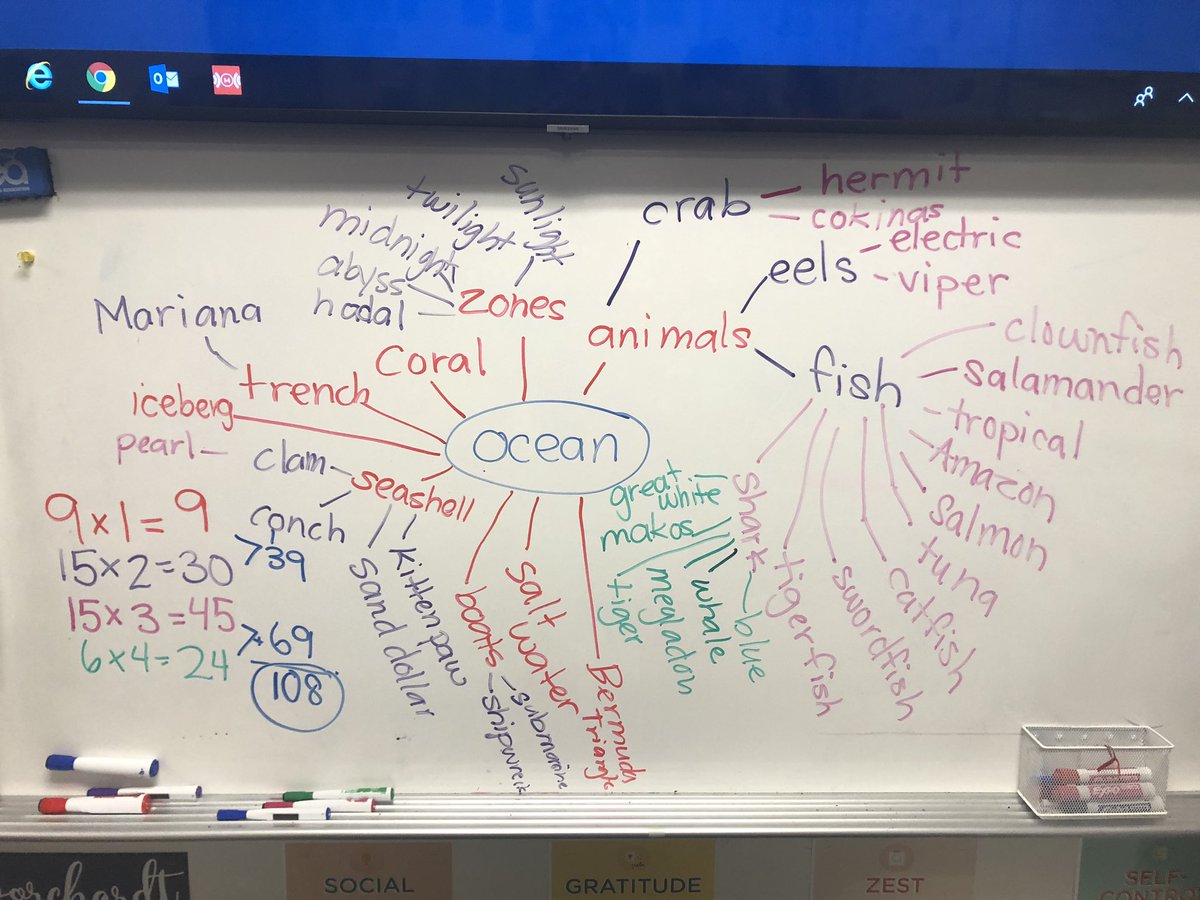 sunlight
twilight
midnight
abyss
hadal
zones
crab
hermit
cokinas
eels
electric
viper
animals
Mariana
trench
Coral
iceberg
ocean
fish
clownfish
salamander
tropical
Amazon
salmon
tuna
catfish
swordfish
tiger fish
shark
great white
makos
tiger
megladon
whale
blue
pearl
clam
seashell
conch
sand dollar
kitten paw
boats
shipwreck
submarine
salt water
Bermuda
triangle
9 x 1 = 9
15 x 2 = 30
>39
15 x 3 = 45
6 x 4 = 24
>69
108
SOCIAL
GRATITUDE
ZEST
SELF-